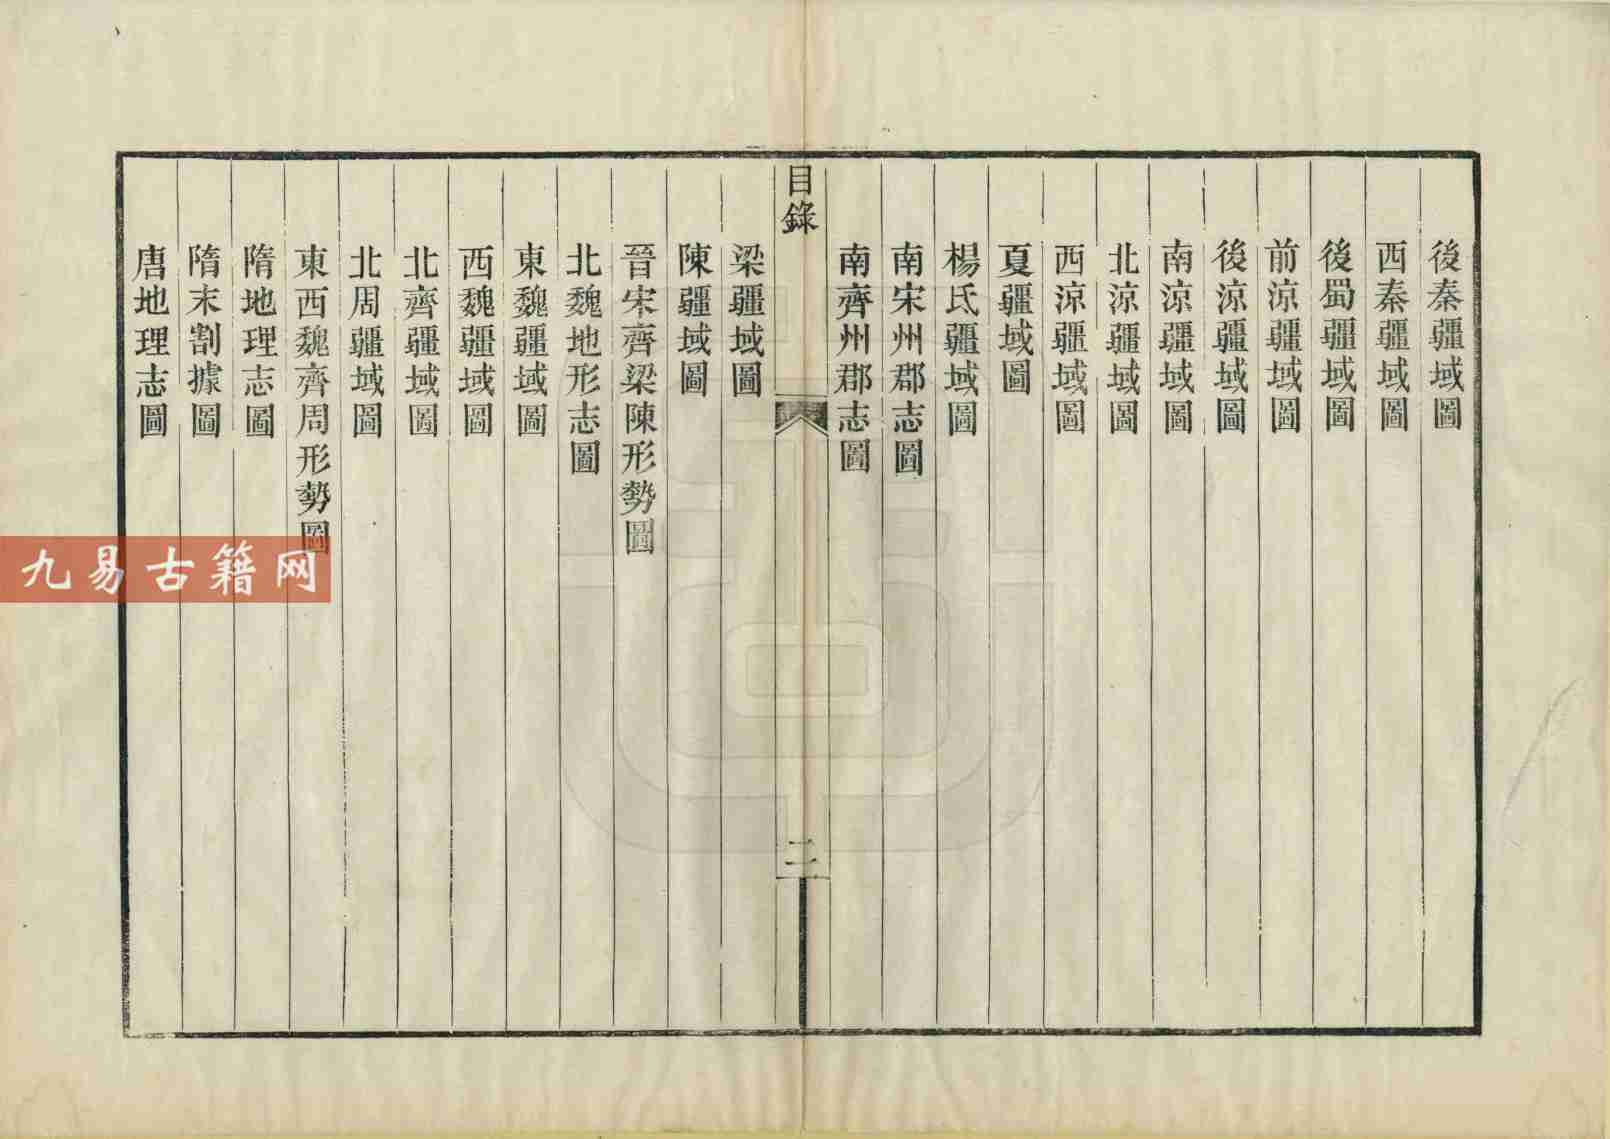 後秦疆域圖
西秦疆域圖
後蜀疆域圖
前涼疆域圖
後涼疆域圖
南涼疆域圖
北涼疆域圖
西涼疆域圖
夏疆域圖
楊氏疆域圖
南宋州郡志圖
南齊州郡志圖
目錄
二
梁疆域圖
陳疆域圖
晉宋齊梁陳形勢圖
北魏地形志圖
東魏疆域圖
西魏疆域圖
北齊疆域圖
北周疆域圖
東西魏齊周形勢圖
隋地理志圖
隋末割據圖
唐地理志圖
九易古籍网